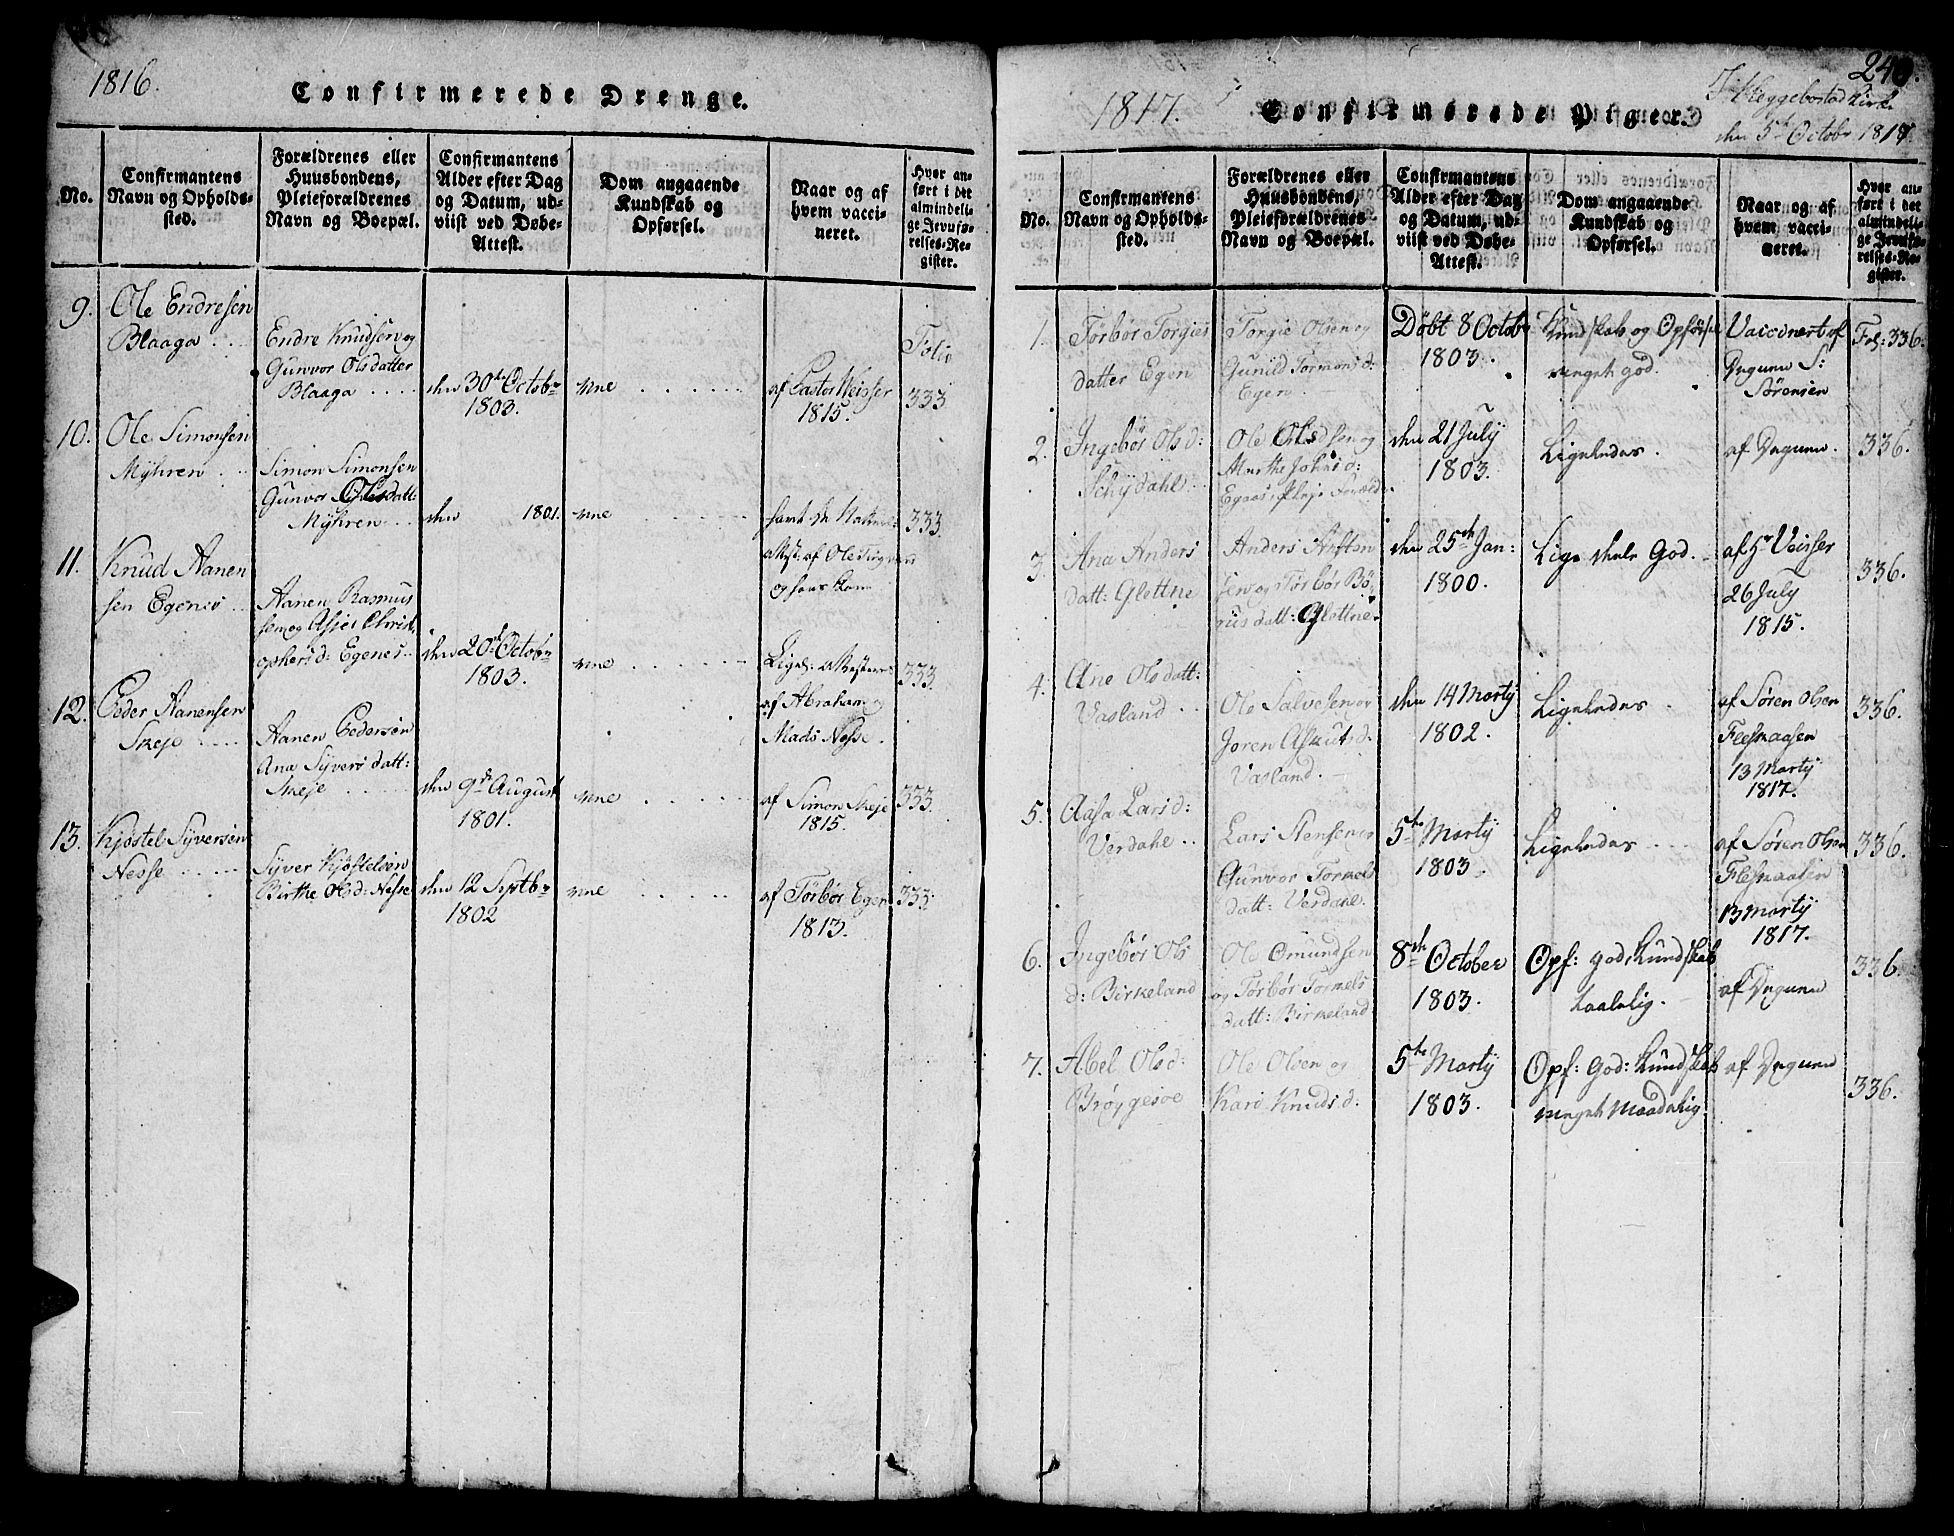 1816.
Confirmerede Drenge.
No.
Confirmantens
Navn og Opholds-
sted.
Forældrenes eller
Huusbondens,
Pleieforældrenes
Navn og Boepæl.
Confirmantens
Alder efter Dag
og Datum, ud-
viist ved Døbe-
Attest.
Dom angaaende
Kundskab og
Opførsel.
Naar og af
hvem vacci-
neret.
Hvor an-
ført i det
almindeli-
ge Jevnfø-
relses-Re-
gister.
9. Ole Endresen
Blaaga . . .
Endre Knudsen og
Gunvor Olsdatter
Blaaga . . . .
den 30te Octobr
1803.
af Pastor Weisser
1815.
Folio
333
10. Ole Simonsen
Mÿhren . . .
Simon Simonsen
Gunvor Olesdatt:
Mÿhren . . .
den 1801.
333.
11. Knud Aanen
sen Egenes . .
Aanen Rasmus
sen og Asjer Christ.
ophersd: Egenes . .
den 20de Octobr
1803.
af Abraham og
Mads Nesse.
333.
12. Peder Aanensen
Skeje . . . .
Aanen Pedersen
Ana Sÿversdatt:
Skeje . . . . .
den 9de August
1801.
af Simon Skeje
1815.
333
13. Kjøstel Sÿversen
Nesse . . . . .
Sÿver Kjøstelsen
Birthe Olsd: Nesse
den 12 Septbr
1802
af Tørbør Egen
1813.
333.
240.
I Heggebostad Kirke
den 5te Octobr 1817.
1817.
Confirmerede Piger.
No.
Confirmantens
Navn og Opholds-
sted.
Forældrenes eller
Huusbondens,
Pleieforældrenes
Navn og Boepæl.
Confirmantens
Alder efter Dag
og Datum, ud-
viist ved Døbe-
Attest.
Dom angaaende
Kundskab og
Opførsel.
Naar og af
hvem vacci-
neret.
Hvor an-
ført i det
almindeli-
ge Jevnfø-
relses-Re-
gister.
1. Tørbør Torgies
datter Egen
Torgie Olsen og
Gunild Tormonsd:
Egen.
Døbt 8 Octobr
1803.
Kundskab og Opførsel
meget god.
Vaccinert af
Degnen S:
Sørensen
Fol: 336.
2. Ingebør Olsd:
Schÿdahl . .
Ole Olsen og
Marthe Johnsd:
Egaas, Pleje Foræld.
den 21 July
1803.
Ligeledes.
af Degnen.
336.
3. Ana Anders
datt: Glettne
Anders Aroten
sen og Tørbør Bø-
rusdatt: Glettne.
den 25de Jan:
1800.
Lige deels God.
af Hr Veisser
26 July
1815.
336.
4. Ane Olsdatt:
Vasland . .
Ole Salvesen og
Joren Asnutsd:
Vasland.
den 14 Martÿ
1802.
Ligeledes.
af Søren Olsen
Fleskaasen
13 Martÿ
1817.
336.
5. Aasa Larsd:
Verdahl . .
Lars Stensen og
Gunvor Tormels
datt: Verdahl.
5te Martÿ
1803.
Ligeledes . . . .
af Søren Olsen
Fleskaasen
13 Martÿ
1817.
336.
6. Ingebør Ols
d: Birkeland
Ole Omundsen
og Tørbør Tormels
datt: Birkeland.
8de October
1803.
Opf: god, Kundskab
taalelig.
af Degnen
336.
7. Abel Olsd:
Brøÿgesøe
Ole Olsen og
Kari Knudsd:
5te Martÿ
1803.
Opf: God: Kundskab
meget Maadelig.
af Degnen
336.